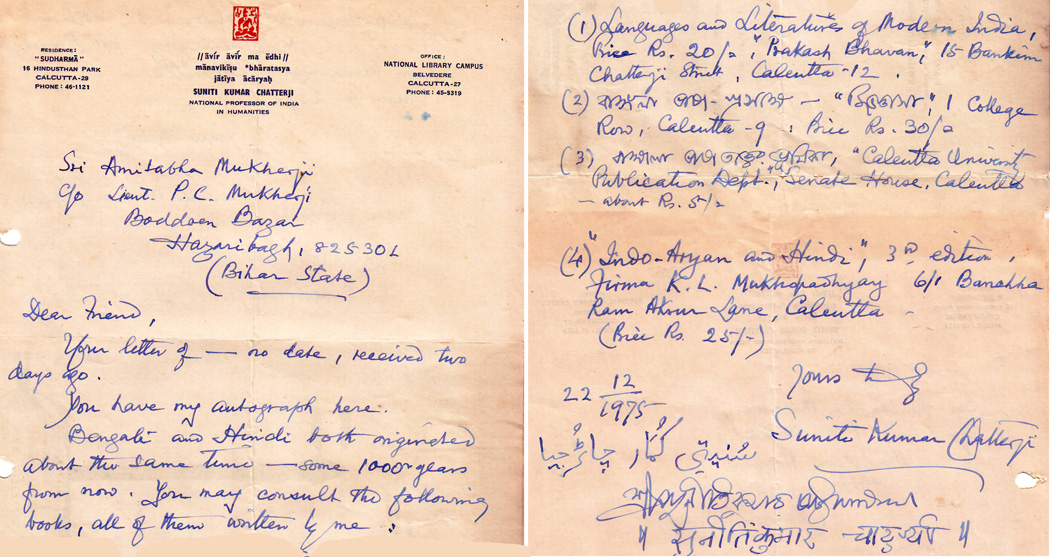 RESIDENCE:
"SUDHARMĀ"
16 HINDUSTHAN PARK
CALCUTTA-29
PHONE: 46-1121
//āvir āvīr ma ēdhi//
mānavikīṣu *bhāratasya
jātīya ācāryaḥ
SUNITI KUMAR CHATTERJI
NATIONAL PROFESSOR OF INDIA
IN HUMANITIES
OFFICE:
NATIONAL LIBRARY CAMPUS
BELVEDERE
CALCUTTA-27
PHONE: 45-5319
Sri Amitabha Mukherji
c/o Lieut. P. C. Mukherji
Boddoen Bazar
Hazaribagh, 825301
(Bihar State)
Dear Friend,
Your letter of — no date, received two
days ago.
You have my autograph here.
Bengali and Hindi both originated
about the same time — some 1000 years
from now. You may consult the following
books, all of them written by me :
(1) Languages and Literatures of Modern India,
Price Rs. 20/=, "Prakash Bhavan," 15 Bankim
Chatterji Street, Calcutta-12.
(2) বাঙ্গালা ভাষা-প্রসঙ্গে — "জিজ্ঞাসা", 1 College
Row, Calcutta-9 : Price Rs. 30/=
(3) বাঙ্গালা ভাষাতত্ত্বের ভূমিকা, "Calcutta University
Publication Dept.", Senate House, Calcutta
— about Rs. 5/=
(4) "Indo-Aryan and Hindi", 3rd edition,
Firma K. L. Mukhopadhyay 6/1 Banchha
Ram Akrur Lane, Calcutta —
(Price Rs. 25/-)
22 12/1975
Yours
Suniti Kumar Chatterji
سُنِیتی کُمار چاٹُرجیا
শ্রীসুনীতিকুমার চট্টোপাধ্যায়
॥ सुनीतिकुमार चाटुर्ज्या ॥